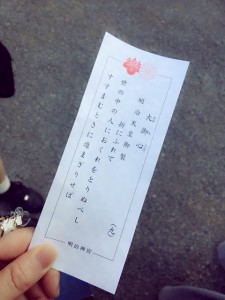 大御心
(九)
明治天皇御製
折にふれて
世の中の人におくれをとりぬべし
すすまむときに進まざりせば
明治神宮